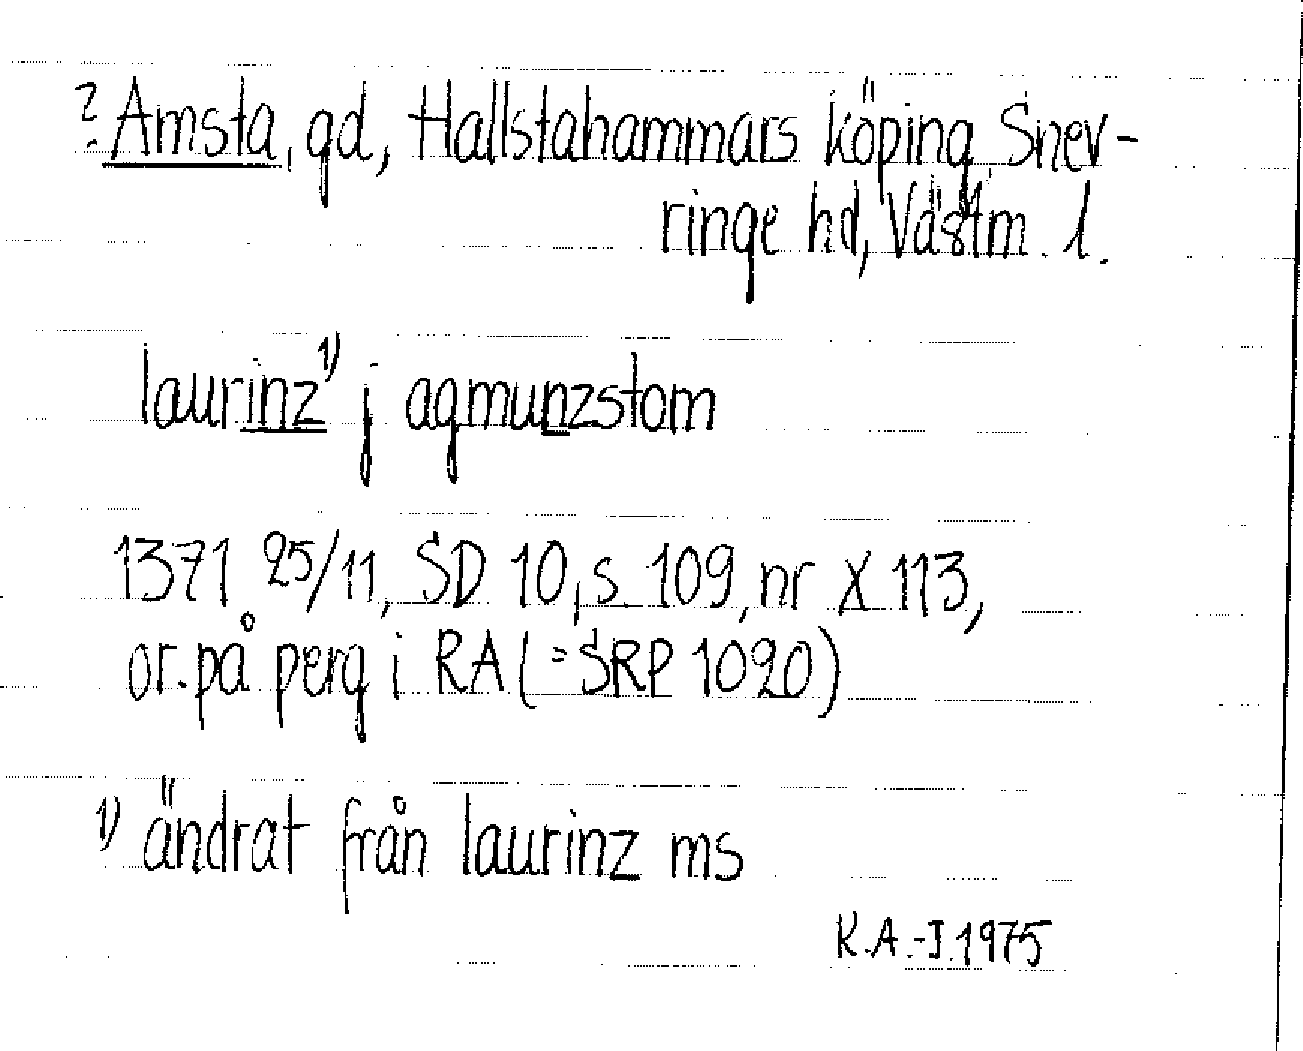 ? Amsta, gd, Hallstahammars köping, Snev-
ringe hd, Västm. l.
laurinz 1) j agmunzstom
1371 25/11, SD 10, s. 109, nr X 113,
or. på perg i RA (= SRP 1020)
1) ändrat från laurinz ms
K.A.-J. 1975